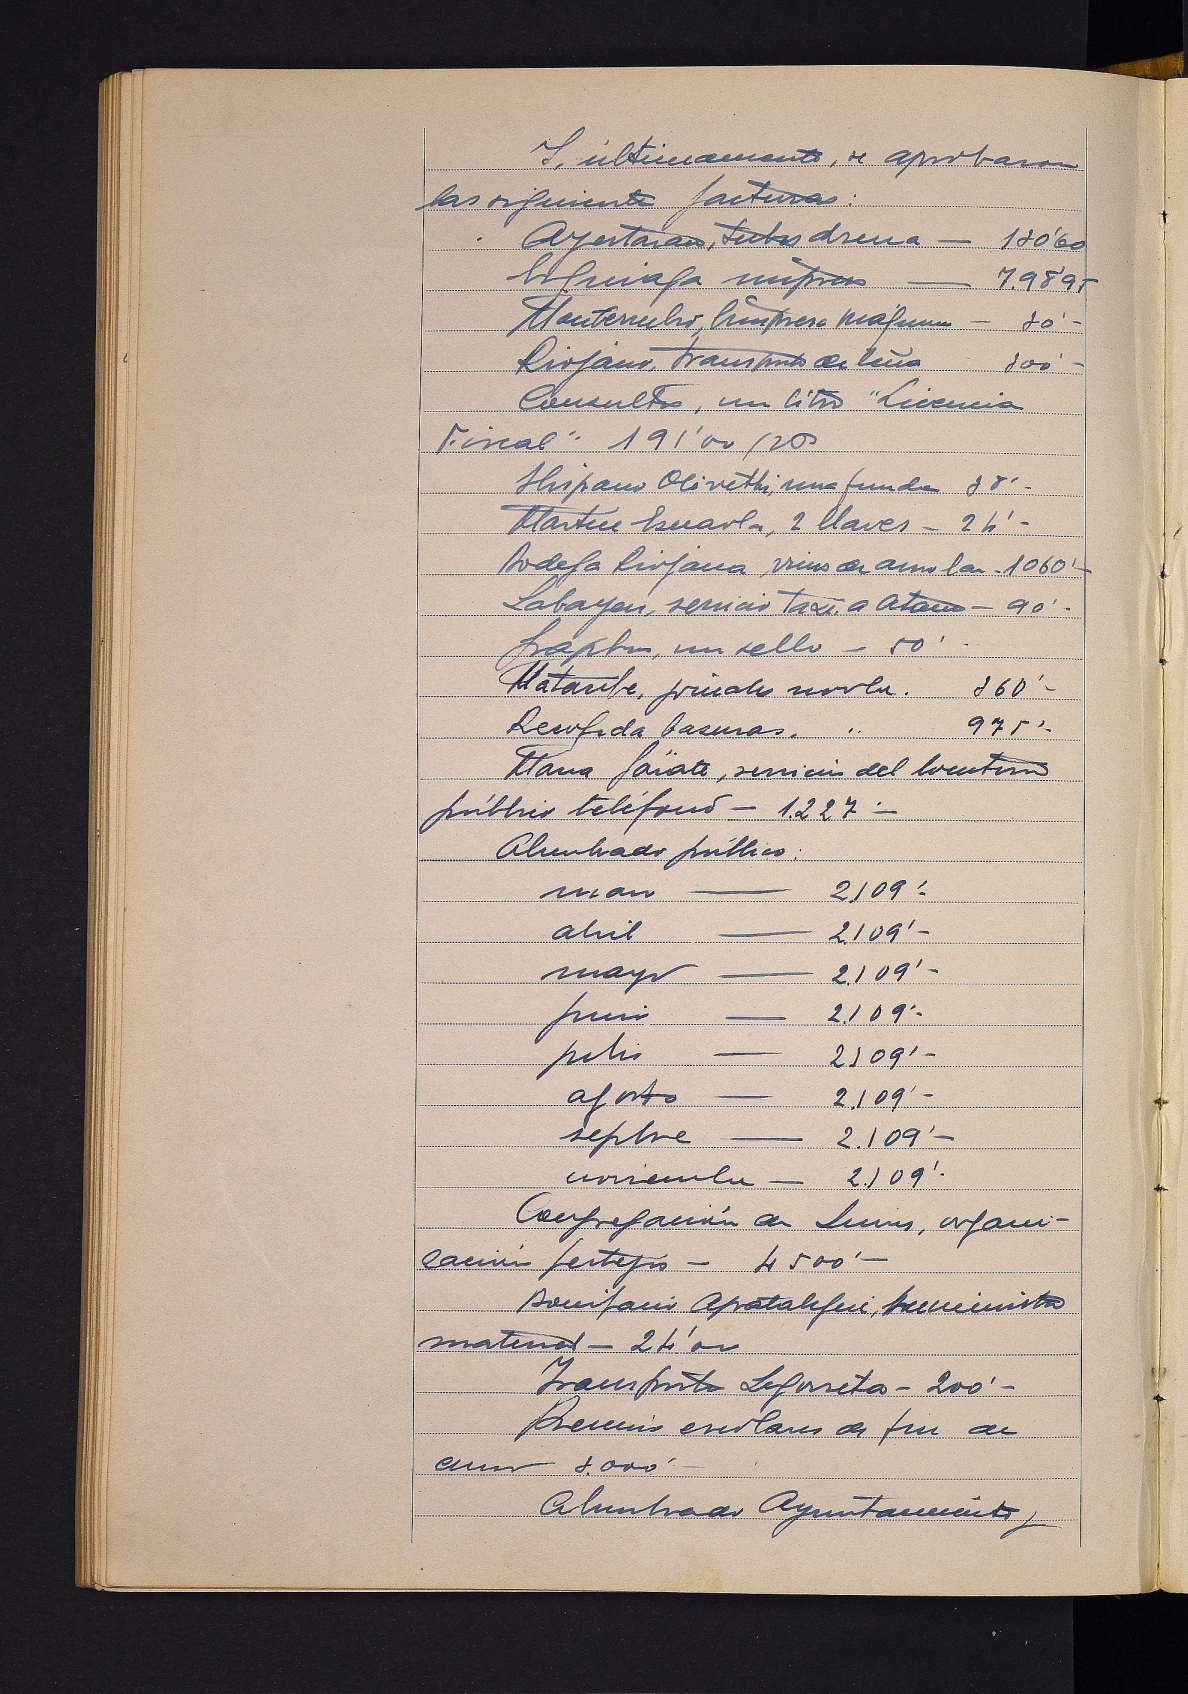 Y, últimamente, se aprobaron
las siguientes facturas:
Ayestaran, tubos drena — 180'60
impresos — 7.98'95
Monterrubio, limpieza máquina — 80'-
Riojano, transporte de leña 800'-
Consultor, un libro "Licencia
Fiscal" 191'00 pts
Hispano Olivetti, una funda 38'-
Martin Esnaola, 2 llaves — 24'-
Bodega Riojana, vinos de 1060'-
Labayen, servicio taxi a Ataun — 90'-
un sello — 50'
Mataribe, jornales novbre. 860'-
Recogida basuras. " 975'-
Maria Gárate, servicio del locutorio
público teléfono — 1.227'-
Alumbrado público:
marzo — 2.109'-
abril — 2.109'-
mayo — 2.109'-
junio — 2.109'-
julio — 2.109'-
agosto — 2.109'-
septbre — 2.109'-
noviembre — 2.109'-
Congregación de Luises, organi-
zación festejos — 4500'-
Bonifacio Apalategui, suministro
material — 24'00
Transportes Legorreta — 200'-
Premios escolares de fin de
curso 8.000'-
Alumbrado Ayuntamiento,